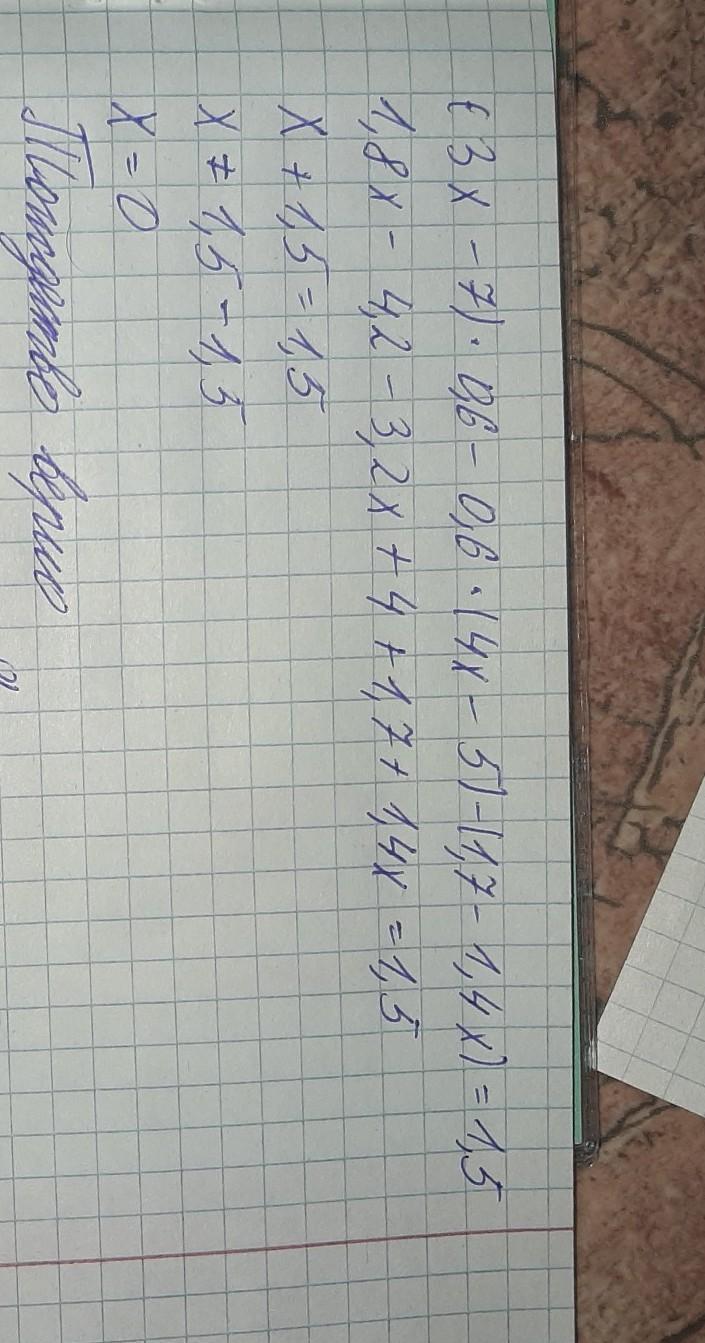 (3x - 7) · 0,6 - 0,6 · (4x - 5) - (1,7 - 1,4x) = 1,5
1,8x - 4,2 - 3,2x + 4 + 1,7 + 1,4x = 1,5
x + 1,5 = 1,5
x + 1,5 - 1,5
x = 0
Тождество верно